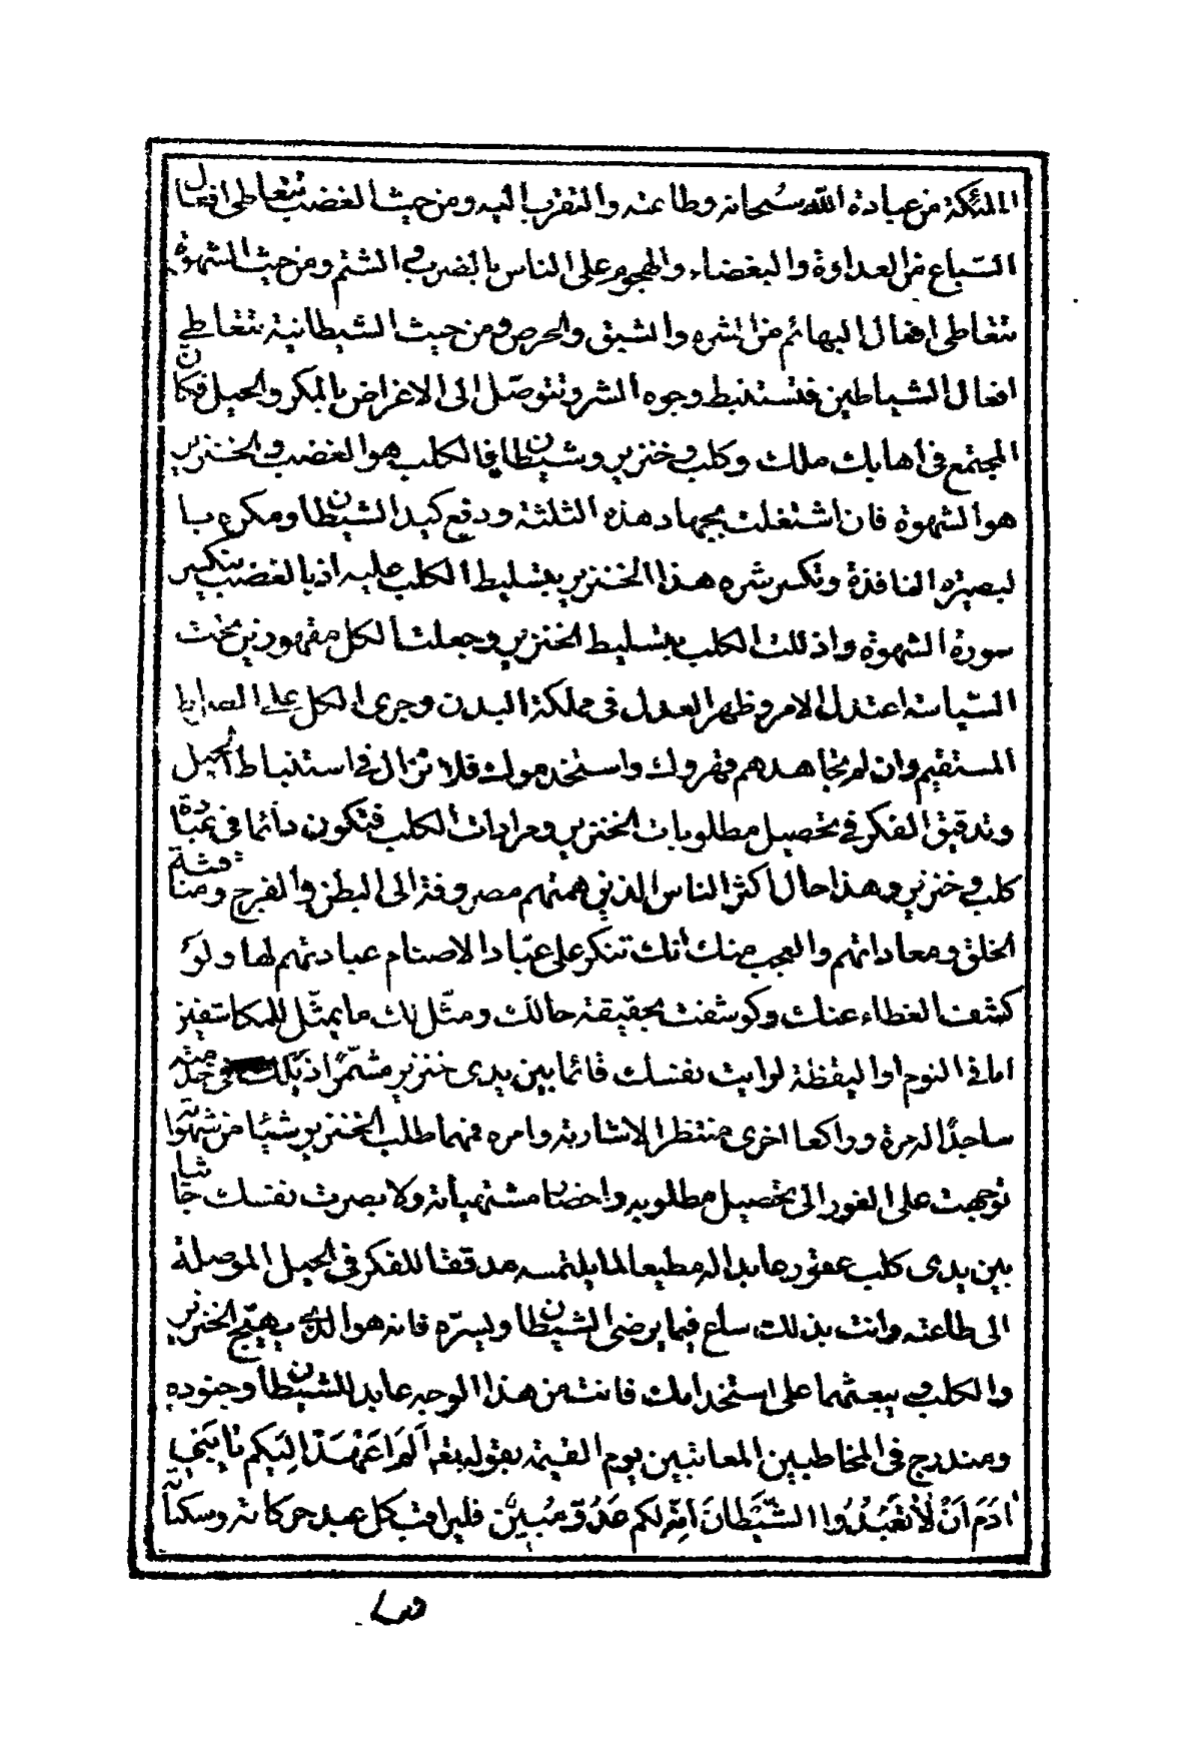 الملئكة من عبادة اللّه سُبحانه وطاعته والتقرب اليه ومن حيث الغضب تتعاطى افعال
السّباع من العداوة والبغضاء والهجوم على الناس بالضرب والشتم ومن حيث الشهوة
تتعاطى افعال البهائم من الشره والشبق والحرص ومن حيث الشيطانية تتعاطى
افعال الشياطين فتستنبط وجوه الشر وتتوصّل الى الاغراض بالمكر والحيل فكان
المجتمع فى اهابك ملك وكلب وخنزير وشيطان فالكلب هو الغضب والخنزير
هو الشهوة فان اشتغلت بجهاد هذه الثلثة ودفع كيد الشيطان ومكره با
لبصيرة النافذة وتكسر شره هذا الخنزير بتسليط الكلب عليه اذ بالغضب تنكسر
سورة الشهوة واذللت الكلب بتسليط الخنزير وجعلت الكل مقهورين تحت
السّياسة اعتدل الامر وظهر العدل فى مملكة البدن وجرى الكل على الصراط
المستقيم وان لم تجاهدهم قهروك واستخدموك فلا تزال فى استنباط الحيل
وتدقيق الفكر فى تحصيل مطلوبات الخنزير ومرادات الكلب فتكون دائما فى عبادة
كلب وخنزير وهذا حال اكثر الناس الذين همتهم مصروفة الى البطن والفرج ومناقشة
الخلق ومعاداتهم والعجب منك انك تنكر على عبّاد الاصنام عبادتهم لها ولو
كشف الغطاء عنك وكوشفت بحقيقة حالك ومثّل لك ما يمثّل للمكاشفين
اما فى النوم او اليقظة لرايت نفسك قائما بين يدى خنزير مشمّرًا ذيلك فى خدمته
ساجدًا له مرة وراكعا اخرى منتظرا لاشارته وامره فمهما طلب الخنزير شيئا من شهواته
توجهت على الفور الى تحصيل مطلوبه واحضار مشتهياته ولابصرت نفسك جاثيا
بين يدى كلب عقور عابدا له مطيعا لما يلتمسه مدققا للفكر فى الحيل الموصلة
الى طاعته وانت بذلك ساع فيما يرضى الشيطان ويسرّه فانه هو الذى يهيّج الخنزير
والكلب ويبعثهما على استخدامك فانت من هذا الوجه عابد للشيطان وجنوده
ومندرج فى المخاطبين المعاتبين يوم القيمة بقوله تعه اَلَمْ اَعْهَدْ اِلَيكم يا بَنى
ادَمَ اَنْ لا تَعْبُدُوا الشَّيْطانَ اِنّه لكم عَدُوٌّ مُبينٌ فليراقب كل عبد حركاته وسكناته